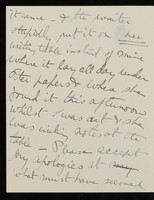 it same - & the writer
stupidly put it on her
writing table instead of mine
where it lay all day under
other papers & when she
found it this afternoon
whilst I was out & she
was writing notes at the
table - Please accept
my apologies it
what must have seemed